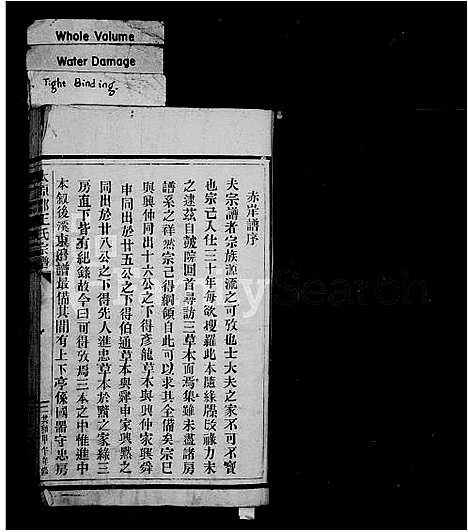 Whole Volume
Water Damage
Tight Binding.
赤岸譜序
夫宗譜者宗族源流之可攷也士大夫之家不可不寳
也宗己入仕三十年每欲搜羅此本隨緣牒役祿力未
之逮茲自皷院回首尋訪三草本而焉集雖未盡諸房
譜系之祥然宗己得綱領自此可以求其全備矣宗巳
與興仲同出十六公之下得彥龍草本與興仲家興舜
申同出於廿五公之下得伯通草本與舜申家興點之
同出於廿八公之下得先人進忠草本於點之家綠三
房直下皆有紀錄故今日可得攷焉三本之中惟進中
本叙後溪東舊譜最備其間有上下亭係國器守忠房
太原郡王氏宗譜